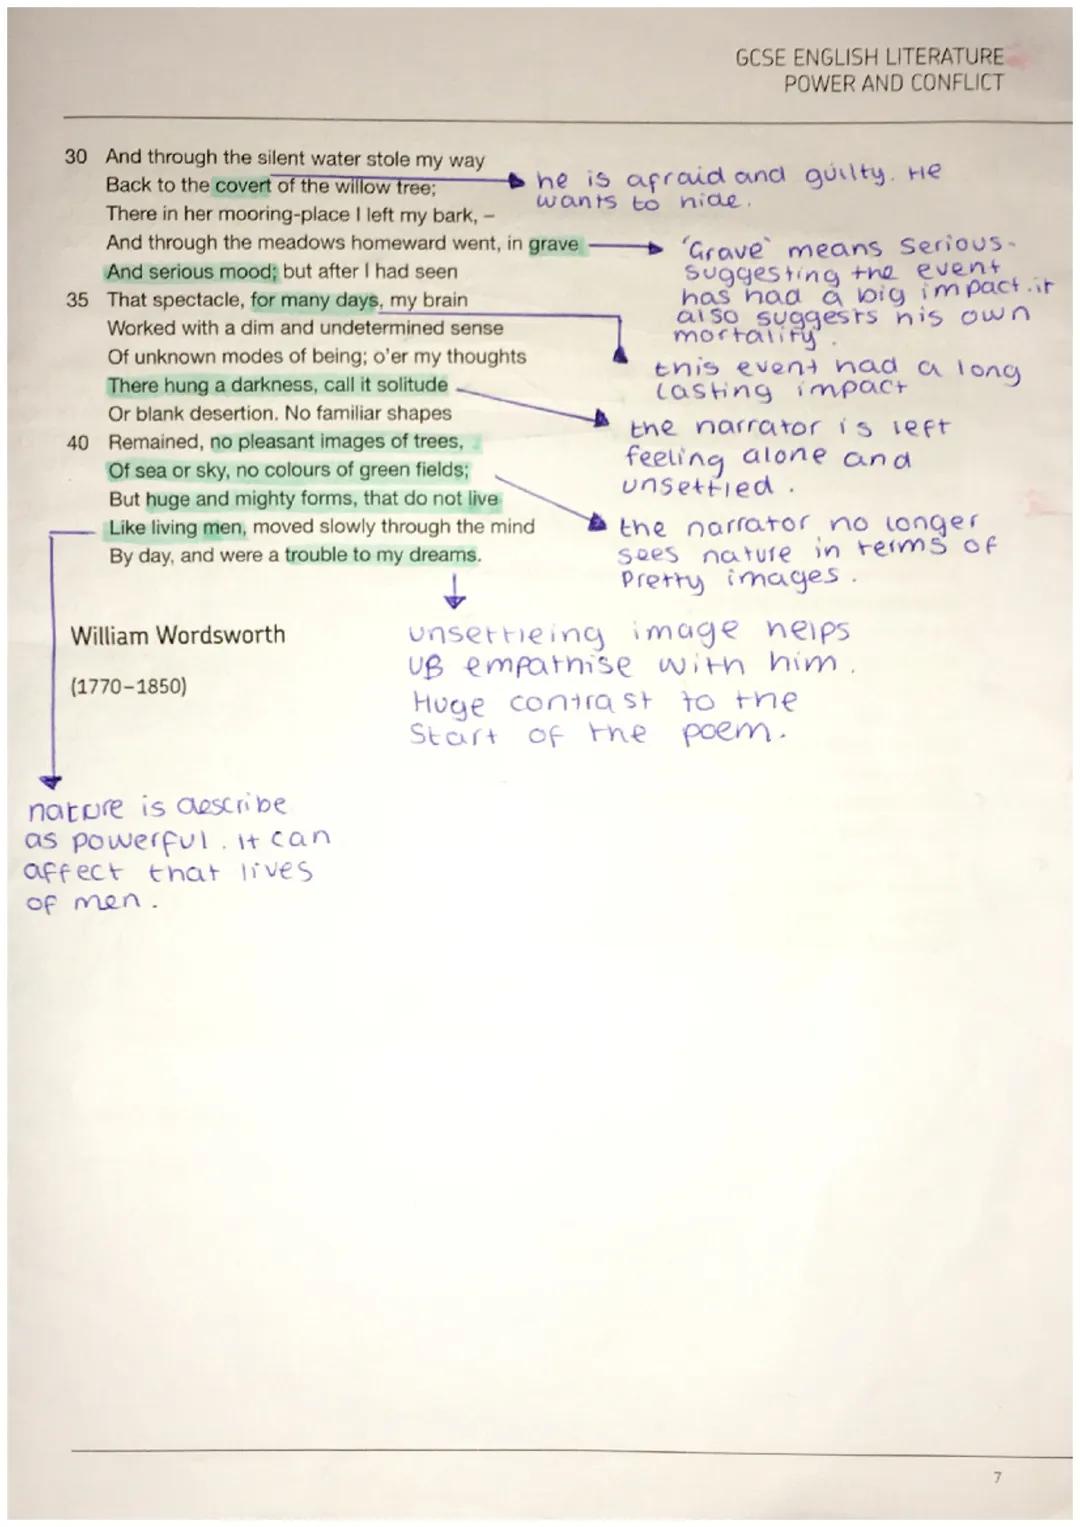 GCSE ENGLISH LITERATURE
POWER AND CONFLICT
30 And through the silent water stole my way
Back to the covert of the willow tree;
There in her mooring-place I left my bark, –
And through the meadows homeward went, in grave
And serious mood; but after I had seen
35 That spectacle, for many days, my brain
Worked with a dim and undetermined sense
Of unknown modes of being; o'er my thoughts
There hung a darkness, call it solitude
Or blank desertion. No familiar shapes
40 Remained, no pleasant images of trees,
Of sea or sky, no colours of green fields;
But huge and mighty forms, that do not live
Like living men, moved slowly through the mind
By day, and were a trouble to my dreams.
he is afraid and guilty. He
wants to hide.
'Grave' means serious-
suggesting the event
has had a big impact. it
also suggests his own
mortality.
this event had a long
lasting impact
the narrator is left
feeling alone and
unsettled.
the narrator no longer
sees nature in terms of
pretty images.
William Wordsworth
(1770–1850)
unsettleing image helps
us empathise with him.
Huge contrast to the
start of the poem.
nature is describe
as powerful. It can
affect that lives
of men.
7